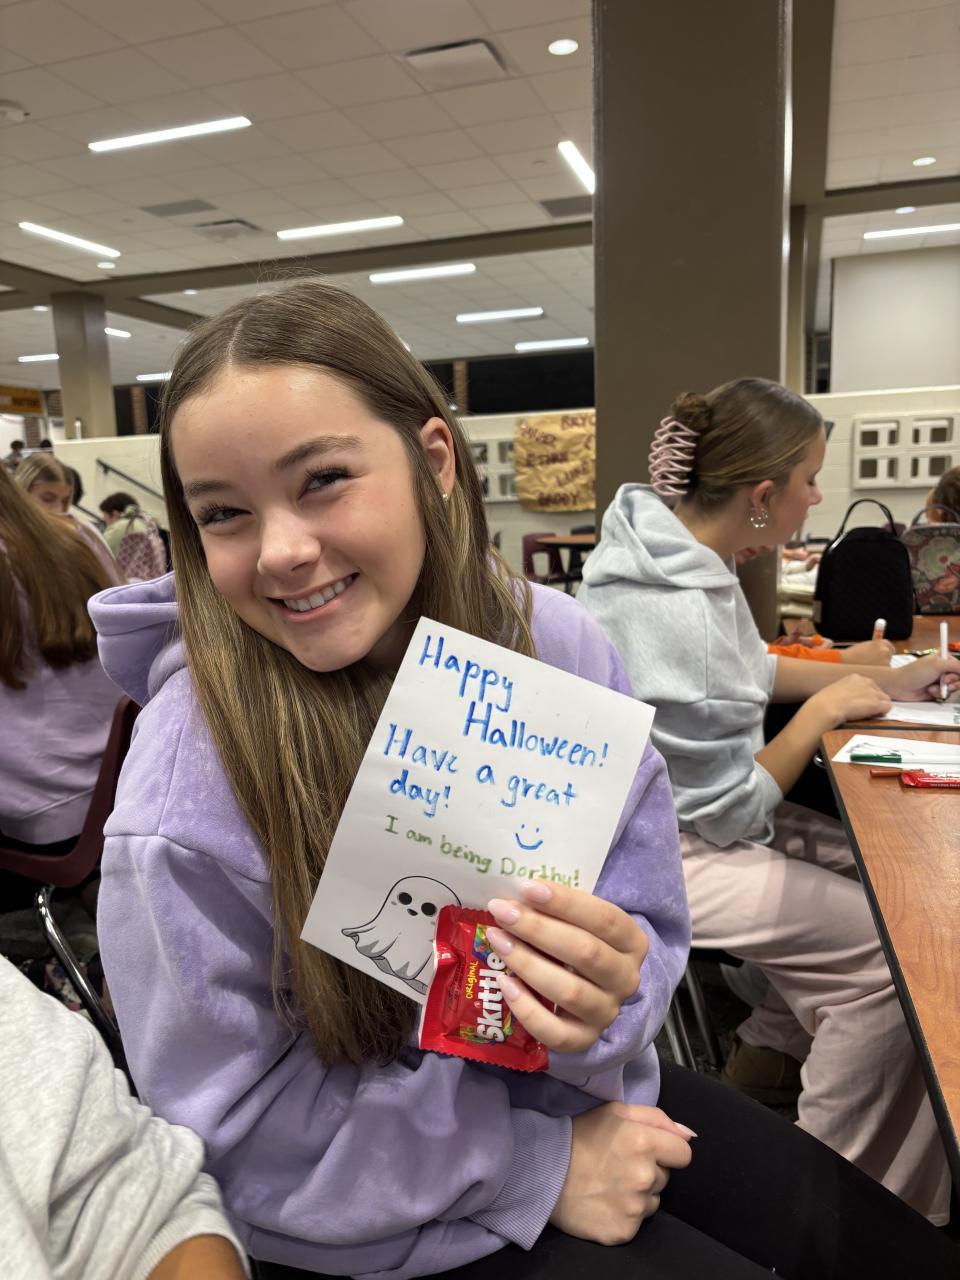 Happy
Halloween!
Have a great
day!
I am being Dorthy!
ORIGINAL
Skittles